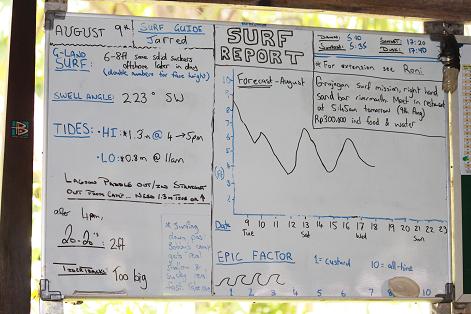 AUGUST 9th
SURF GUIDE
Jarred
G-LAND
SURF:
6-8ft some solid suckers
offshore later in day
(double numbers for face height)
SWELL ANGLE: 223° SW
TIDES: • HI: 1.3m @ 4 → 5pm
• LO: 0.8m @ 11am
LAGOON PADDLE OUT/IND STRAIGHT
OUT FROM CAMP... NEED 1.3m TIDE OR ↑
after 4pm,
20-20's: 2ft
TIGER TRACKS: Too big
* Surfing
down past
camp
gets real
shallow &
sucks real
fast.
SURF
REPORT
DAWN: 5:10
SUNRISE: 5:35
SUNSET: 17:20
DUSK: 17:40
* For extension see Roni
Forecast - August
Grajagan Surf mission, right hand
sand bar rivermouth. Meet in restaurant
at 5:45am tomorrow (9th Aug)
Rp300,000 incl food & water
10
9
8
7
6
5
4
3
2
(ft)
Date 9 10 11 12 13 14 15 16 17 18 19 20 21 22 23
Tue Sat Wed Sun
EPIC FACTOR 1 = custard 10 = all-time
1 2 3 4 5 6 7 8 9 10